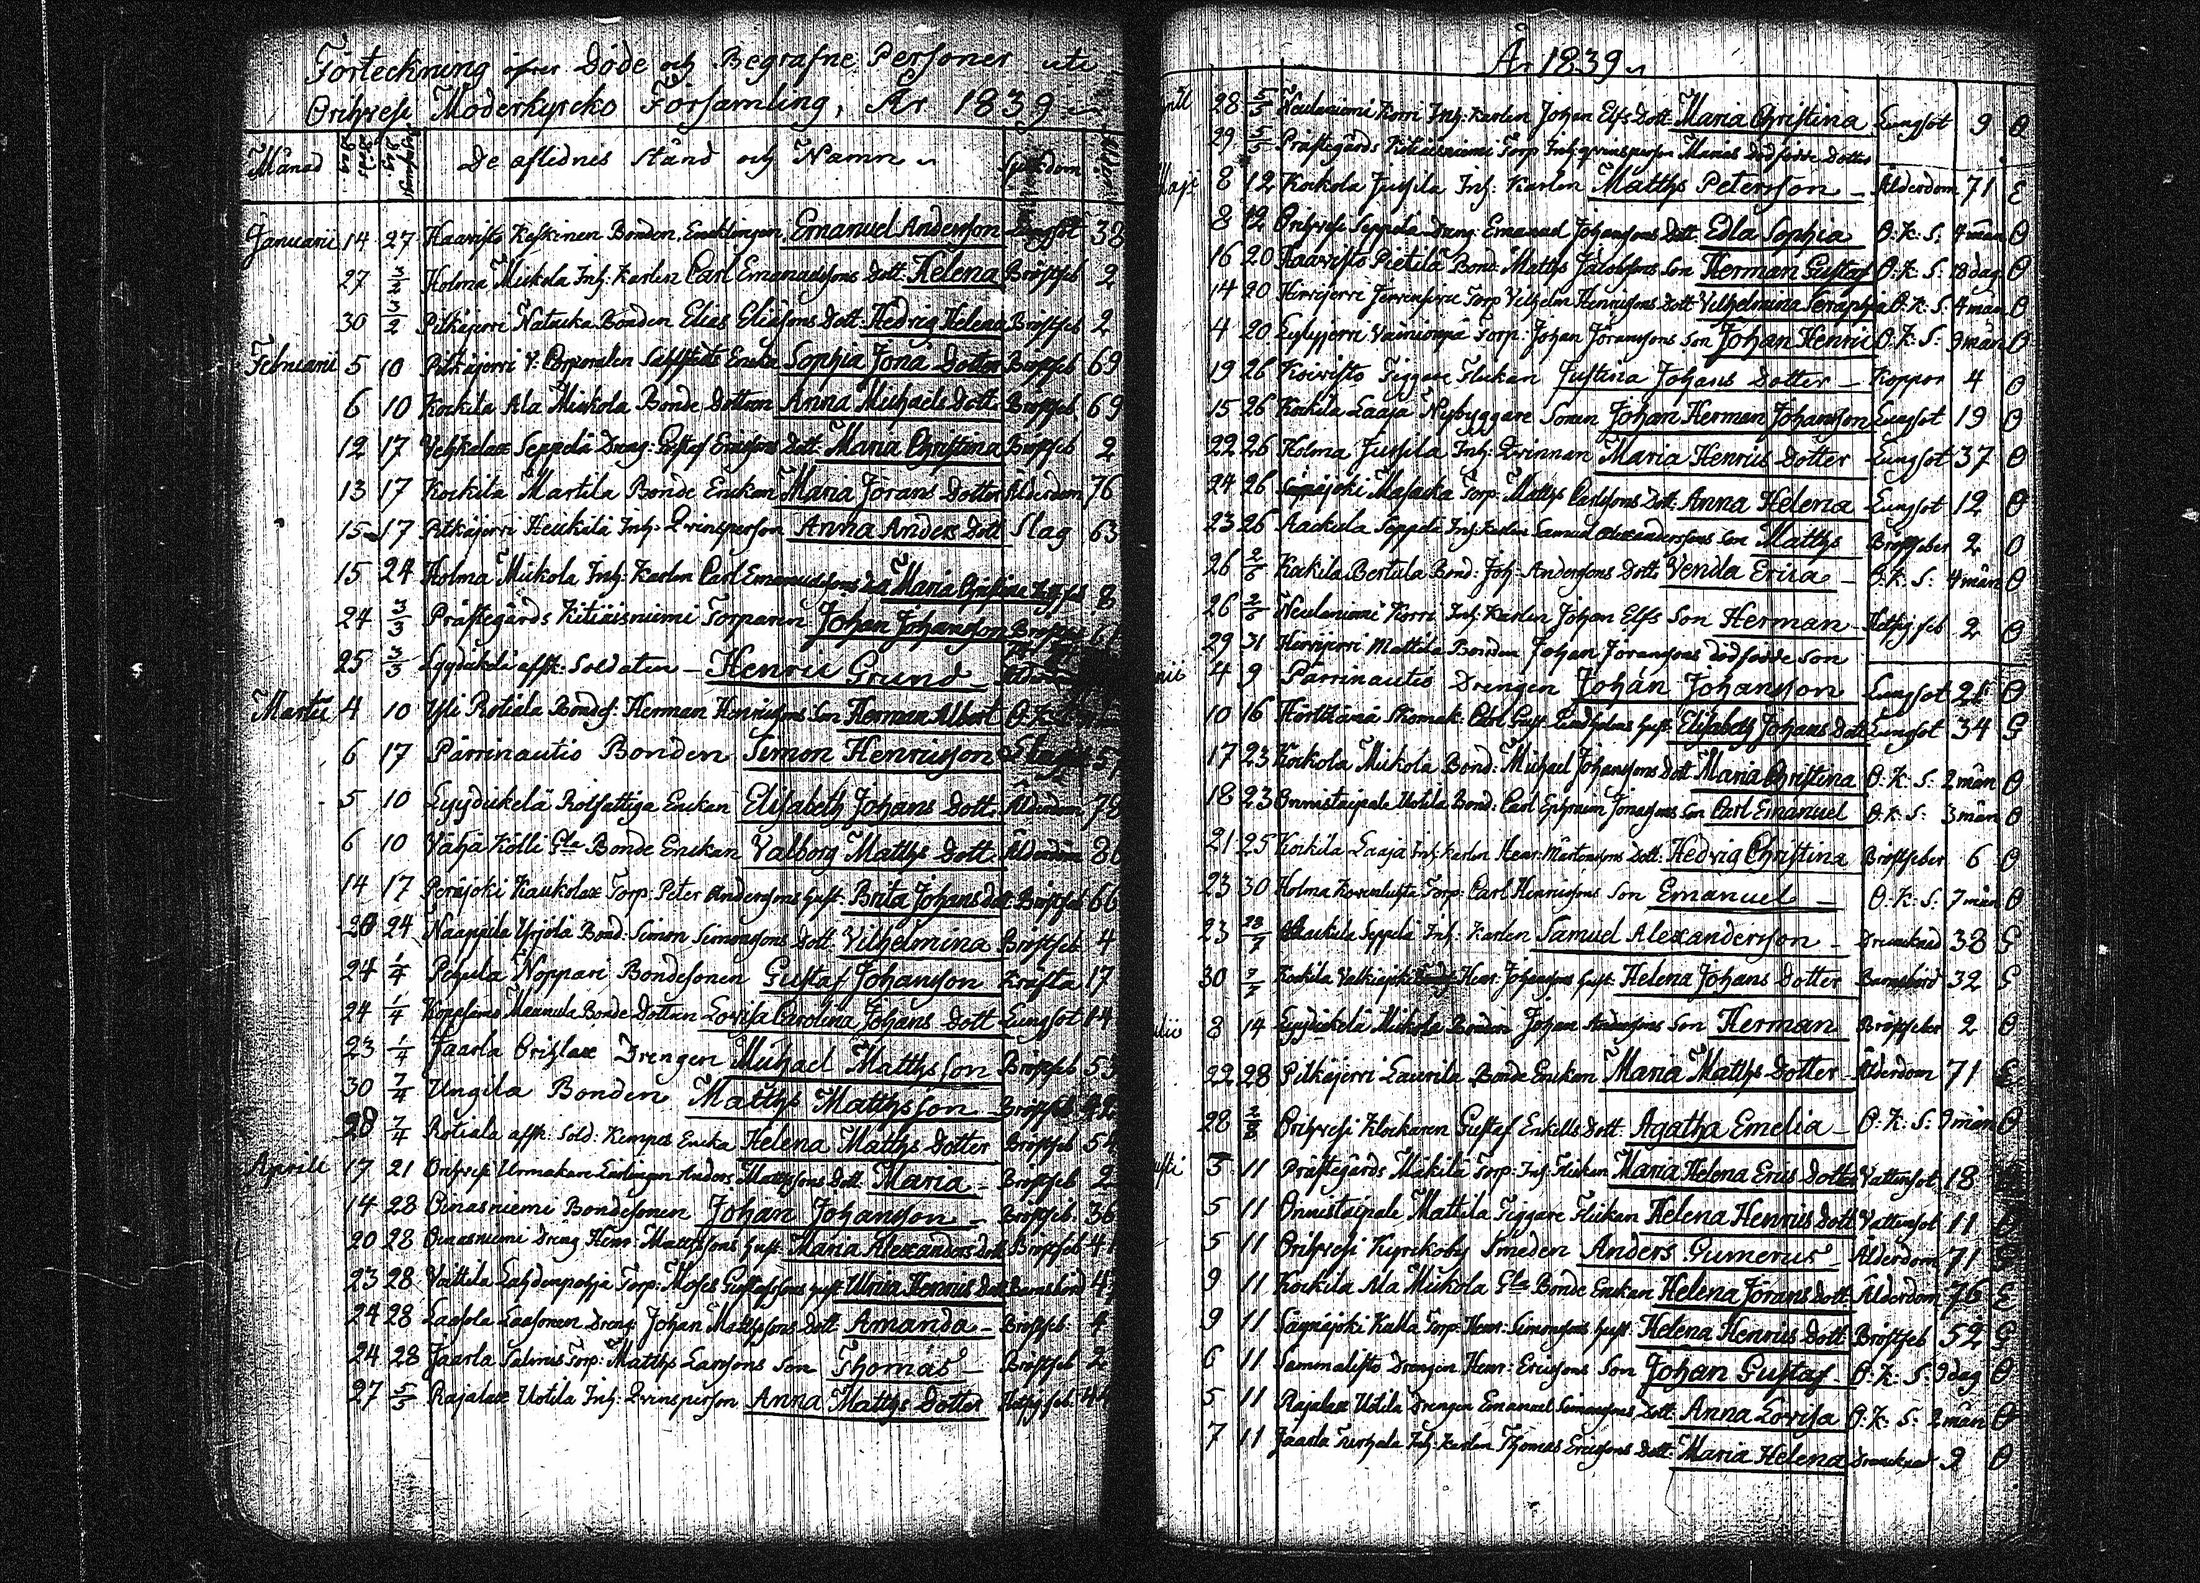 Förteckning öfver Döde och Begrafne Personer uti
Orihvesi Moderkyrcko Församling, År 1839
Månad De aflidnes stånd och Namn Sjukdom
Januarii 14 27 Haavisto Keskinen Bonden Emanuel Andersson Lungsot 38
27 3/2 Holma Mickola Inh: Karlen Carl Emanuelssons Dott: Helena Bröstfeb 2
30 3/2 Pitkäjerri Bonden Elias Eliæsons Dott: Hedvig Helena Bröstfeb 2
Februarii 5 10 Pitkäjerri V. Corporalen Enka Sophia Jona Dotter Bröstfeb 69
6 10 Kockila Ala Mickola Bonde Dottren Anna Michaels Dott Bröstfeb 69
12 17 Vehkalax Seppelä Dräng: Gustaf Ericssons Dott: Maria Christina Bröstfeb 2
13 17 Kockila Martila Bonde Enckan Maria Jörans Dotter Ålderdom 76
15 17 Pitkäjerri Heickilä Inh: Qvinsperson Anna Anders Dott Slag 63
15 24 Holma Mickola Inh: Karlen Carl Emanuelssons Maria Christina 8
24 3/3 Prästegårds Kitiäisniemi Torparen Johan Johansson
25 3/3 Lyydickelä afsk: Soldaten Henric Grund
Martii 4 10 Yli Rotiala Bondes: Herman Henricssons Son Herman Albert
6 17 Pärrinautio Bonden Simon Henricsson Slag
5 10 Lyydickelä Rotfattiga Enckan Elisabeth Johans Dott: Ålderdom 78
6 10 Vähä Kölli Gla Bonde Enckan Valborg Matths Dott Ålderdom
14 17 Peräjoki Kaukolax Torp: Peter Anderssons hust: Brita Johans dot: Bröstfeb 66
20 24 Naappila Yrjölä Bond: Simon Simonssons Dott Vilhelmina Bröstfeb 4
24 1/4 Pehula Noppari Bondesonen Gustaf Johansson Kräfta 17
24 1/4 Bonde Dottren Lovisa Carolina Johans Dott Lungsot 14
23 1/4 Jaarla Orihlax Drengen Michael Matthsson Bröstfeb 53
30 7/4 Ungila Bonden Matths Matthsson Bröstfeb
28 7/4 Rotiala afsk: Sold: Kempes Encka Helena Matths Dotter Bröstfeb 54
Aprill 17 21 Orihvesi Urmakare Lärlingen Anders Matthssons Dott: Maria Bröstfeb 2
14 28 Oinasniemi Bondesonen Johan Johansson Bröstfeb 36
20 28 Oinasniemi Dräng Henr: Matthssons hust: Maria Alexanders dott Bröstfeb
23 28 Vättilä Lahdenpohja Torp: Moses Gustafssons hust: Ulrica Henrics Dott Barnsbörd
24 28 Laasola Laasonen Dreng Johan Matthssons Dott Amanda Bröstfeb 4
24 28 Jaarla Salmis Torp: Matths Larssons Son Thomas Bröstfeb 2
27 5/5 Rajalax Uotila Inh: Qvinsperson Anna Matths Dotter Hetsig feb.
År 1839
28 5/5 Neulaniemi Korri Inh: Karlen Johan Elfs Dott: Maria Christina Lungsot 9 O
29 5/5 Prästegårds Kitiäisniemi Torp Inh: qvinsperson Marias Dödfödde Dotter
8 12 Kockola Jussila Inh: Karlen Matths Petersson Ålderdom 71 E
8 12 Orihvesi Seppelä Dreng: Emanuel Johanssons Dott: Edla Sophia O: K: S: 4 mån O
16 20 Haavisto Pietilä Bond: Matths Jacobssons Son Herman Gustaf O: K: S: 18 dag O
14 20 Hirrijerri Torp Vilhelm Henricssons Dott Vilhelmina Seraphia O: K: S: 4 mån O
4 20 Lyhyjerri Torp: Johan Jöranssons Son Johan Henric O: K: S: 9 mån O
19 26 Koivisto Tiggare Flickan Justina Johans Dotter Koppor 4 O
15 26 Kockila Laaja Nybyggare Sonen Johan Herman Johansson Lungsot 19 O
22 26 Holma Jussila Inh: Qvinnan Maria Henrics Dotter Lungsot 37 O
24 26 Masacka Torp: Matths Carlssons Dott: Anna Helena Lungsot 12 O
23 26 Rackula Seppelä Inh: Karlen Samuel Alexanderssons Son Matths Bröstfeber 2 O
26 2/6 Kockila Bertula Bond: Joh: Anderssons Dott: Venda Erica O: K: S: 4 mån O
26 2/6 Neulaniemi Korri Inh: Karlen Johan Elfs Son Herman Hetsig feb 2 O
29 31 Hirrijerri Mattila Bonden Johan Jöranssons dödfödde Son
4 9 Pärrinautio Drengen Johan Johansson Lungsot O
10 16 Skomak: Carl Gust: hust: Elisabeth Johans Dott Lungsot 34 G
17 23 Kockola Mickola Bond: Michael Johanssons Dott Maria Christina O: K: S: 2 mån O
18 23 Onnistaipale Uotila Bond: Carl Ephraim Jonassons Son Carl Emanuel O: K: S: 3 mån O
21 25 Kockila Laaja Inh: Karlen Henr: Mårtenssons Dott: Hedvig Christina Bröstfeber 6 O
23 30 Holma Torp: Carl Henricssons Son Emanuel O: K: S: 7 mån O
23 Rackula Seppelä Inh: Karlen Samuel Alexandersson Drunknad 38 G
30 7/7 Kockila Valkiajoki Henr: Johanssons hust: Helena Johans Dotter Barnsbörd 32 G
8 14 Lyydickelä Mickola Bonden Johan Anderssons Son Herman Bröstfeber 2 O
22 28 Pitkäjerri Laurila Bonde Enckan Maria Matths Dotter Ålderdom 71
28 2/8 Orihvesi Klockaren Gustaf Enkells Dott: Agatha Emelia O: K: S: 9 mån O
3 11 Prästegårds Mäkilä Torp: Inh: Flickan Maria Helena Erics Dotter Vattensot 18
5 11 Onnistaipale Mattila Tiggare Flickan Helena Henrics Dott Vattensot 11
5 11 Orihvesi Kyrckoby Smeden Anders Gumerus Ålderdom 71
9 11 Kockila Ala Mickola Gla Bonde Enckan Helena Jörans Dott: Ålderdom 76 E
9 11 Sägnäjoki Kalla Torp: Henr: Simonssons hust: Helena Henrics Dott: Bröstfeb 52 G
6 11 Sammalisto Drengen Henr: Ericssons Son Johan Gustaf O: K: S: 9 dag O
5 11 Rajalax Uotila Drengen Emanuel Simonssons Dott: Anna Lovisa O: K: S: 2 mån O
7 11 Jaarla Inh: Karlen Thomas Ericssons Dott: Maria Helena Drunknad 9 O